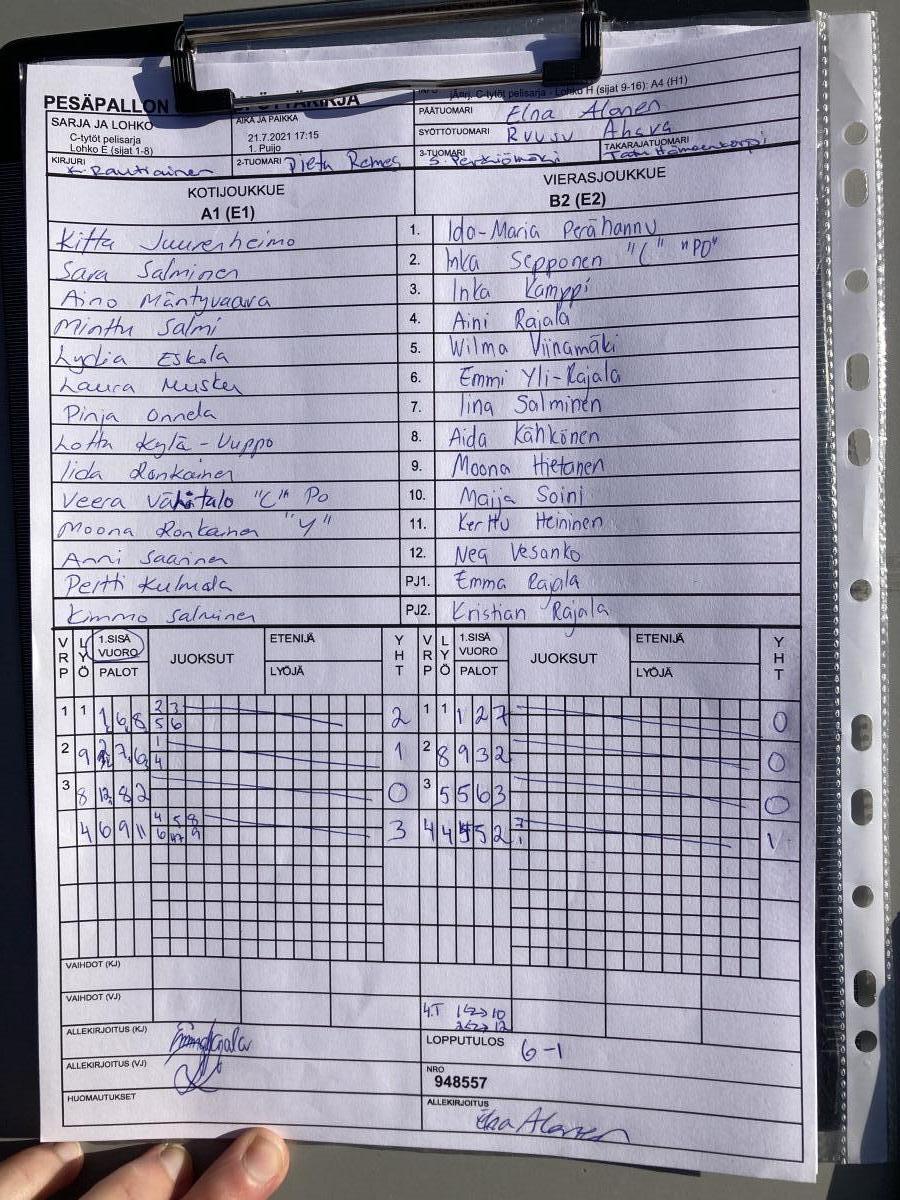 PESÄPALLON
SARJA JA LOHKO
C-tytöt pelisarja
Lohko E (sijat 1-8)
AIKA JA PAIKKA
21.7.2021 17:15
1. Puijo
C-tytöt pelisarja - Lohko H (sijat 9-16): A4 (H1)
PÄÄTUOMARI Elna Alanen
SYÖTTÖTUOMARI Ruusu Ahava
KIRJURI K. Rautiainen
2-TUOMARI Pieta Remes
3-TUOMARI S. Perkiömäki
TAKARAJATUOMARI
KOTIJOUKKUE VIERASJOUKKUE
A1 (E1) B2 (E2)
Kitta Juurenheimo 1. Ida-Maria Perähannu
Sara Salminen 2. Inka Sepponen "C" "PO"
Aino Mäntyvaara 3. Inka Kamppi
Minttu Salmi 4. Aini Rajala
Lydia Eskola 5. Wilma Viinamäki
Laura Musken 6. Emmi Yli-Rajala
Pinja Onnela 7. Iina Salminen
Lotta Kylä-Vuppo 8. Aida Kähkönen
Iida Ronkainen 9. Moona Hietanen
Veera Vähätalo "C" Po 10. Maija Soini
Moona Ronkainen "Y" 11. Kerttu Heininen
Anni Saarinen 12. Nea Vesanko
Pertti Kulmala PJ1. Emma Rajala
Kimmo Salminen PJ2. Kristian Rajala
VRP LYÖ 1.SISÄ VUORO PALOT JUOKSUT ETENIJÄ LYÖJÄ YHT VRP LYÖ 1.SISÄ VUORO PALOT JUOKSUT ETENIJÄ LYÖJÄ YHT
1 1 1 6 8 2 3 2 1 1 1 2 7 0
5 6
2 9 7 6 1 1 2 8 9 3 2 0
4
3 8 12 8 2 0 3 5 5 6 3 0
4 6 9 11 4 5 8 3 4 4 5 2 7 1
6 9 1
VAIHDOT (KJ)
VAIHDOT (VJ) 4.T 1<->10
ALLEKIRJOITUS (KJ)
LOPPUTULOS 6-1
ALLEKIRJOITUS (VJ)
NRO
948557
HUOMAUTUKSET
ALLEKIRJOITUS
Elna Alanen